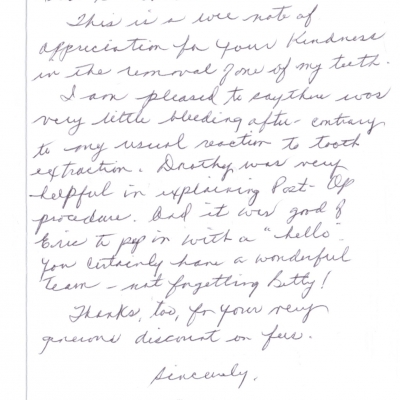 This is a wee note of
appriciation for your Kindness
in the removal of one of my teeth.
I am pleased to say there was
very little bleeding after - contrary
to my usual reaction to tooth
extraction. Dorothy was very
helpful in explaining Post-Op
procedure. And it was good of
Eric to pop in with a "hello"
You certainly have a wonderful
team - not forgetting Betty!
Thanks, too, for your very
generous discount on fees.
Sincerely,